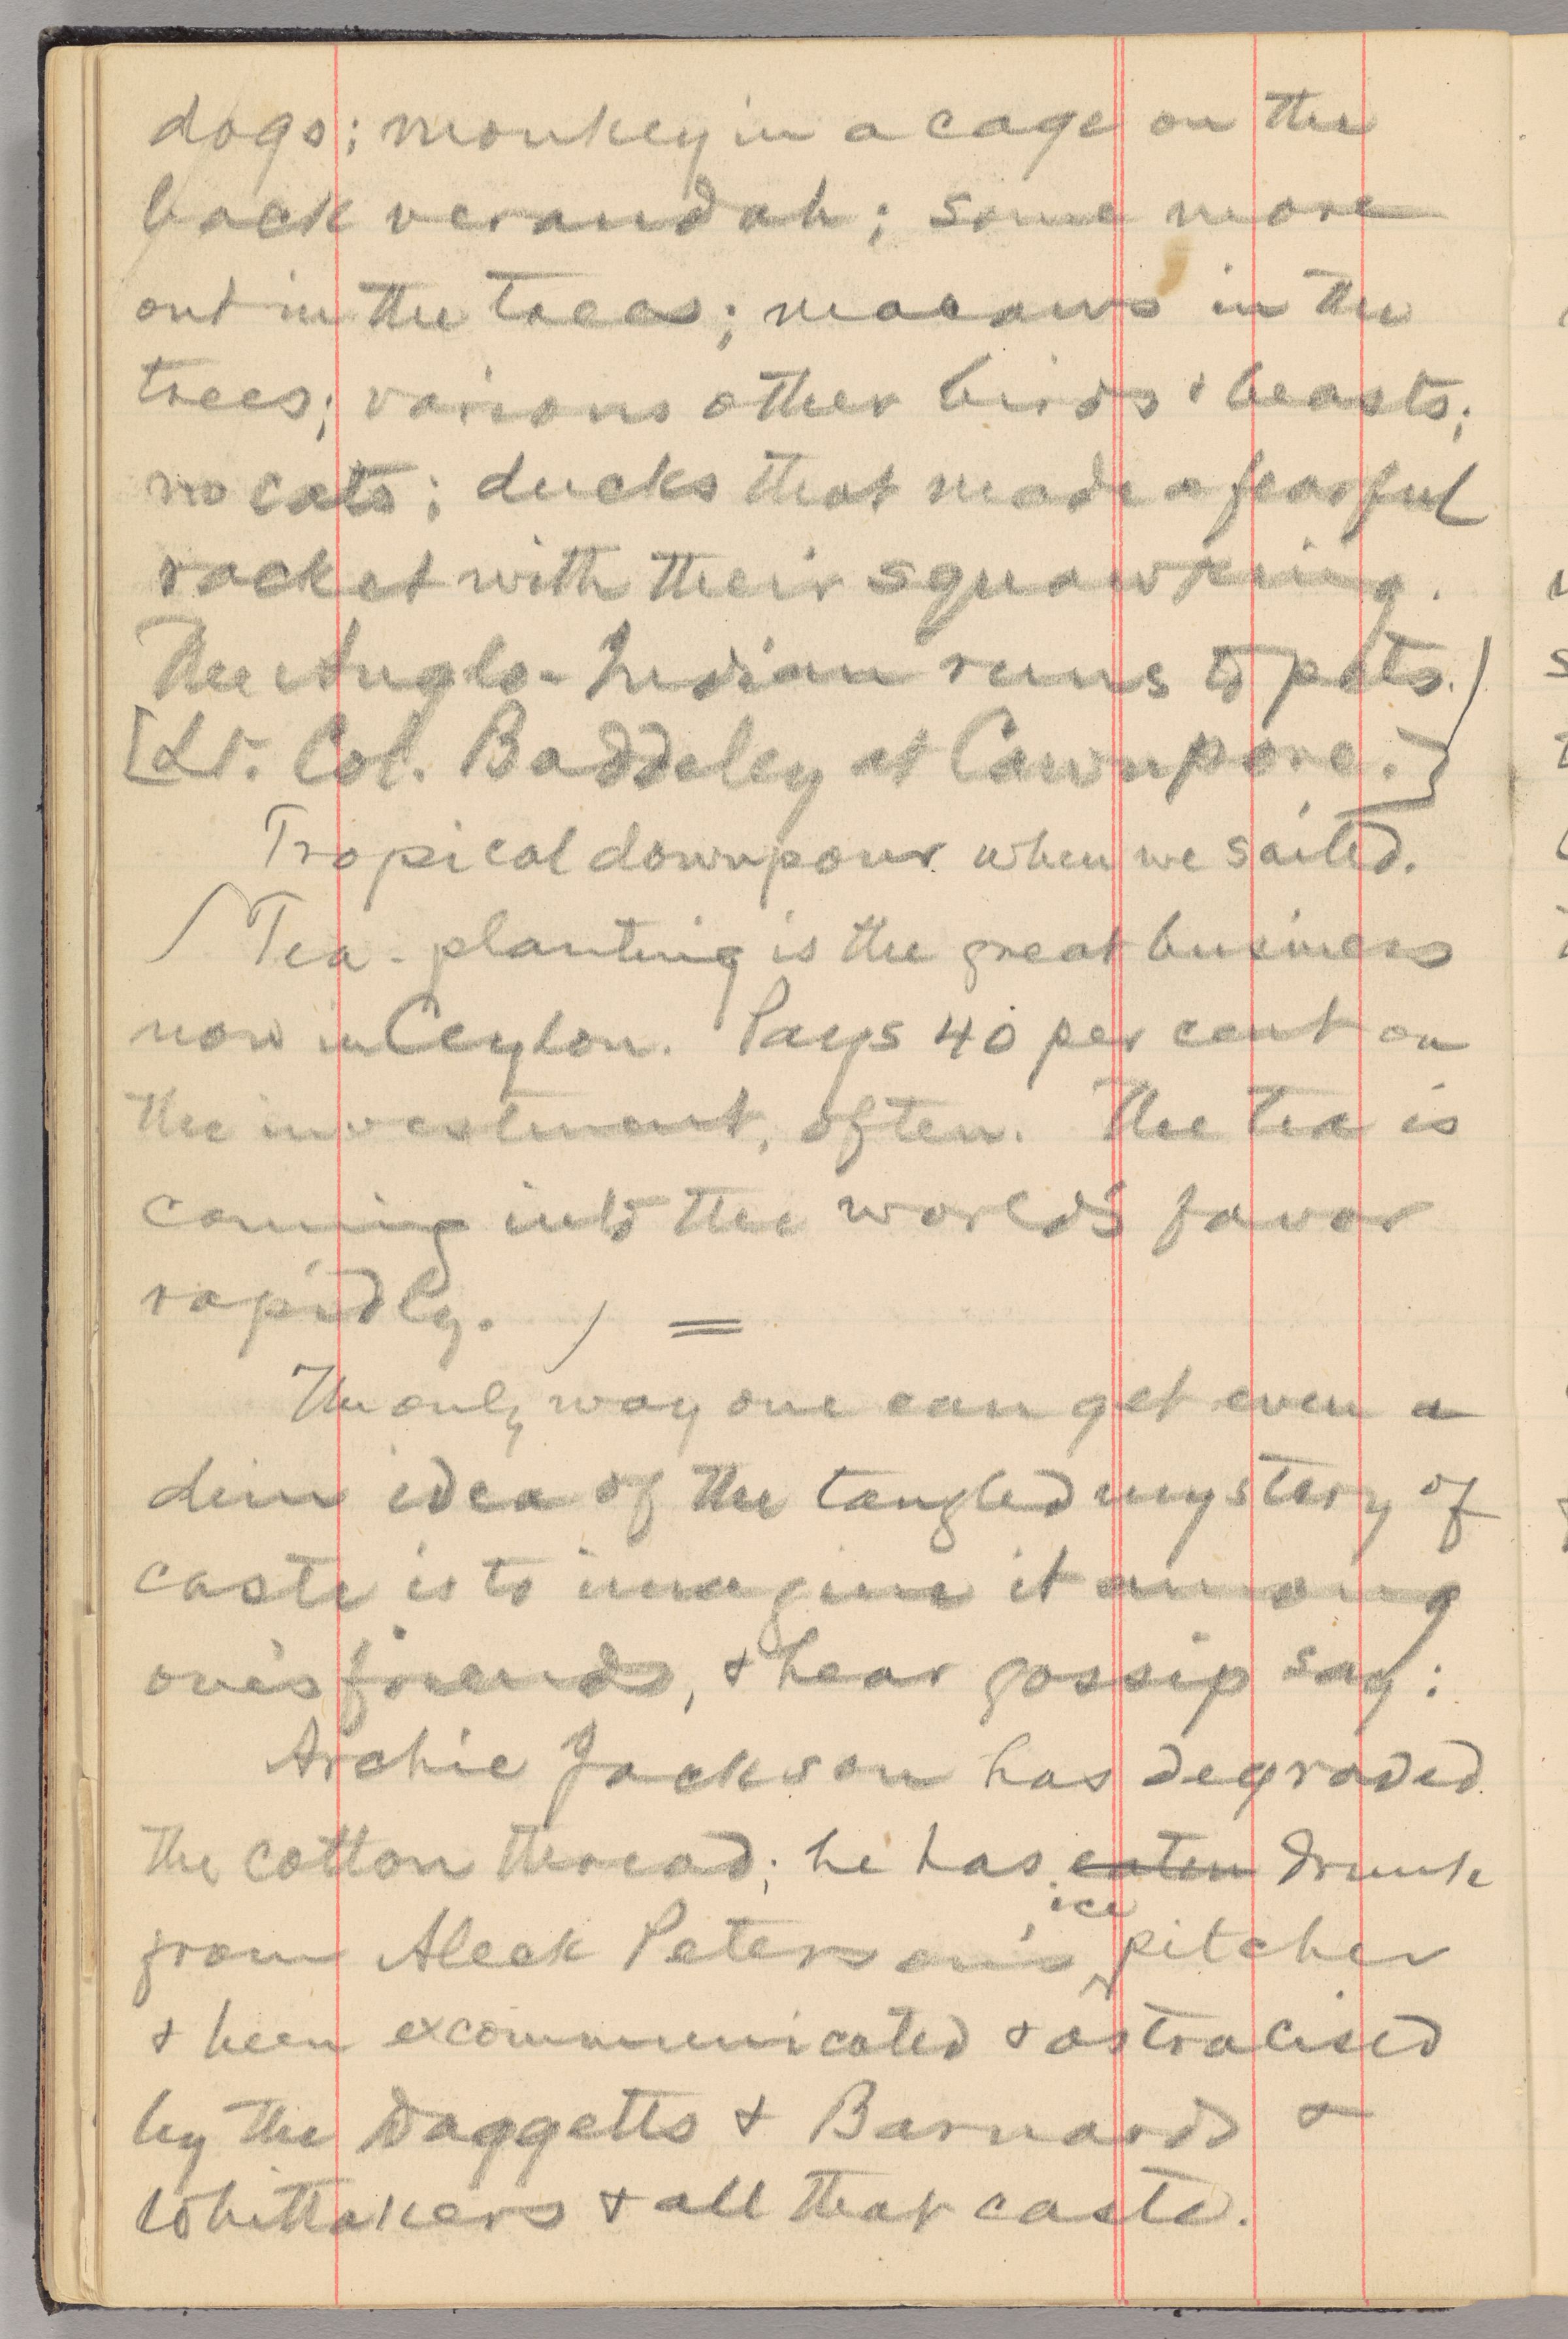 dogs; monkey in a cage on the
back verandah; some more
out in the trees; macaws in the
trees; various other birds & beasts;
no cats; ducks that made a fearful
racket with their squawking.
The Anglo-Indian runs to pets.
[Lt. Col. Baddeley at Cawnpore.]
Tropical downpour when we sailed.
Tea-planting is the great business
now in Ceylon. Pays 40 per cent on
the investment, often. The tea is
coming into the world's favor
rapidly. =
The only way one can get even a
dim idea of the tangled mystery of
caste is to imagine it among
one's friends, & hear gossip say:
Archie Jackson has degraded
the cotton thread; he has eaten drunk
from Aleck Peterson's ice pitcher
& been excommunicated & ostracised
by the Daggetts & Barnards &
Whittakers & all that caste.